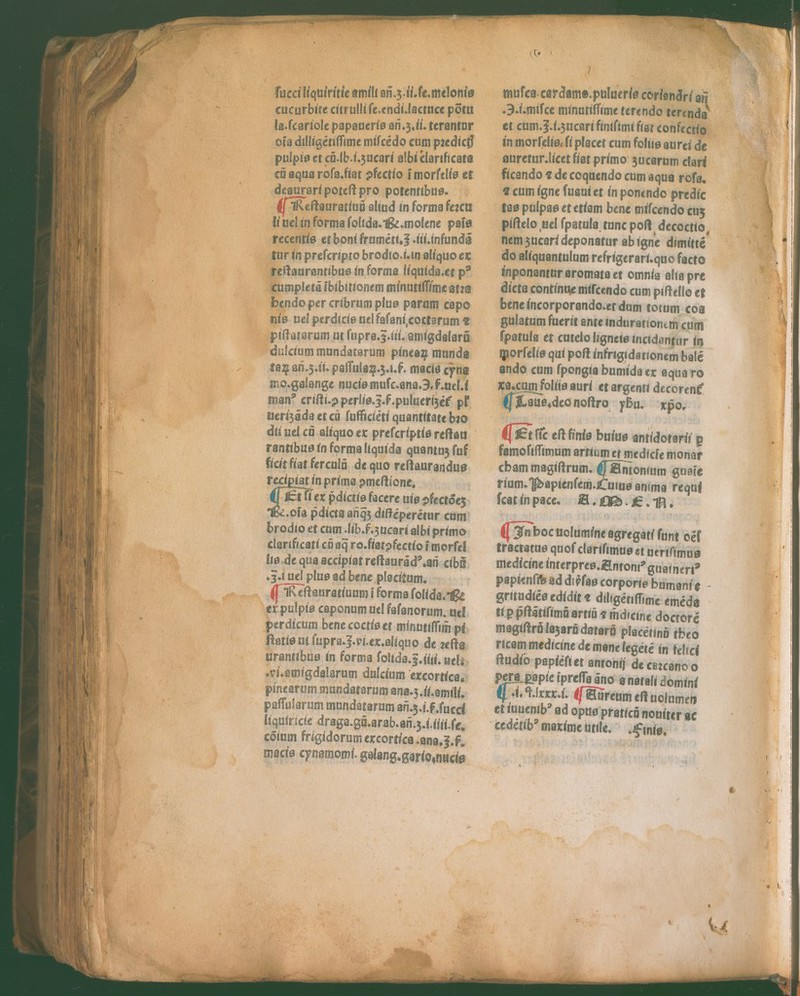 ſucci liquiritie amili an̄.ʒ.ii.ſe.melonis
cucurbite citrulli ſe.endi.lactuce pōtu
la.ſcariole papaueris an̄.ʒ.ii. terantur
oīa dilligētiſſime miſcēdo cum predict
pulpis et cū.lb.i.ʒucari albi clarificata
cū aqua roſa.fiat ꝯfectio ī morſelis et
deaurari poteſt pro potentibus.
¶ Reſtauratiuū aliud in forma fercu
li uel in forma ſolida.℞.molene paīs
recentis et boni frumēti.℥.iii.infundā
tur in preſcripto brodio.i.in aliquo ex
reſtaurantibus in forma liquida.et pꝰ
cumpletā ībibitionem minutiſſime atra
hendo per cribrum plus param capo
nis uel perdicis uel faſani,coctarum ⁊
piſtatarum ut ſupra.℥.iii. amigdalarū
dulcium mundatarum pineaꝝ munda
taꝝ an̄.ʒ.ii. paſſulaꝝ.ʒ.i.f. macis cyna
mo.galange nucis muſc.ana.℈.f.uel.i
manꝰ criſti.ꝯ perlis.℥.f.pulueriʒēt pl
ueriʒāda et cū ſufficiēti quantitate bro
dii uel cū aliquo ex preſcriptis reſtau
rantibus in forma liquida quantuʒ ſuf
ficit fiat ferculū de quo reſtaurandus
recipiat in prima ꝯmeſtione.
¶ Et ſi ex p̄dictis facere uis ꝯfectōeʒ
℞.oīa p̄dicta an̄qʒ diſtēperētur cum
brodio et cum .lib.f.ʒucari albi primo
clarificati cū aq̄ ro.fiat ꝯfectio ī morſel
lis de qua accipiat reſtaurādꝰ.an̄ cibū
.ʒ.i uel plus ad bene placitum.
¶ Reſtauratiuum ī forma ſolida.℞
ex pulpis caponum uel faſanorum. uel
perdicum bene coctis et minutiſſim pi
ſtatis ut ſupra.℥.vi.ex.aliquo de reſta
urantibus in forma ſolida.℥.iiii. uel:
.vi.amigdalarum dulcium excortica.
pinearum mundatarum ana.ʒ.ii.amili.
paſſularum mundatarum an̄.ʒ.i.f.ſucci
liquiricie draga.gū.arab.an̄.ʒ.i.iiii.ſe.
cōium frigidorum excortica .ana.ʒ.f.
macis cynamomi. galang.gario,nucis
muſca.cardamo.pulueris coriandri an̄
.℈.i.miſce minutiſſime terendo terenda
et cum.℥.i.ʒucari finiſimi fiat confectio
in morſelis. ſi placet cum foliis aurei de
auretur.licet fiat primo ʒucarum clari
ficando ⁊ de coquendo cum aqua roſa.
⁊ cum igne ſuaui et in ponendo predic
tas pulpas et etiam bene miſcendo cuʒ
piſtelo uel ſpatula tunc poſt decoctio
nem ʒucari deponatur ab igne dimittē
do aliquantulum refrigerari.quo facto
inponantur aromata et omnia alia pre
dicta continue miſcendo cum piſtello et
bene incorporando.et dum totum coa
gulatum fuerit ante indurationem cum
ſpatula et cutelo ligneis incidantur in
morſelis qui poſt infrigidationem balē
ando cum ſpongia humida ex aqua ro
xa.cum foliis auri et argenti decorent̄
¶ Laus,deo noſtro yh̄u. xp̄o.
¶ Et ſic eſt finis huius antidotarii ꝑ
famoſiſſimum artium et medicīe monar
cham magiſtrum. ¶ Antonium guaīe
rium. Papienſem.Cuius anima requi
ſcat in pace. A. M. E. N.
¶ In hoc uolumine agregati ſunt oēſ
tractatus quoſ clariſimus et ueriſimus
medicine interpres.Antoniꝰ guaineriꝰ
papienſis ad diūſas corporis humani e
gritudiēs edidit ⁊ diligētiſſime emēda
ti ꝑ p̄ſtātiſimū artiū ⁊ mēdicine doctorē
magiſtrū laʒarū datarū placētinū theo
ricam medicine de mane legētē in felici
ſtudio papiēſi et antonij de carcano o
pera papie īpreſſa āno a natali domini
¶ .i.9.lxxx.i. ¶ Aureum eſt uolumen
et iuuenibꝰ ad opus praticū nouiter ac
cedētibꝰ maxime utile. .Finis.